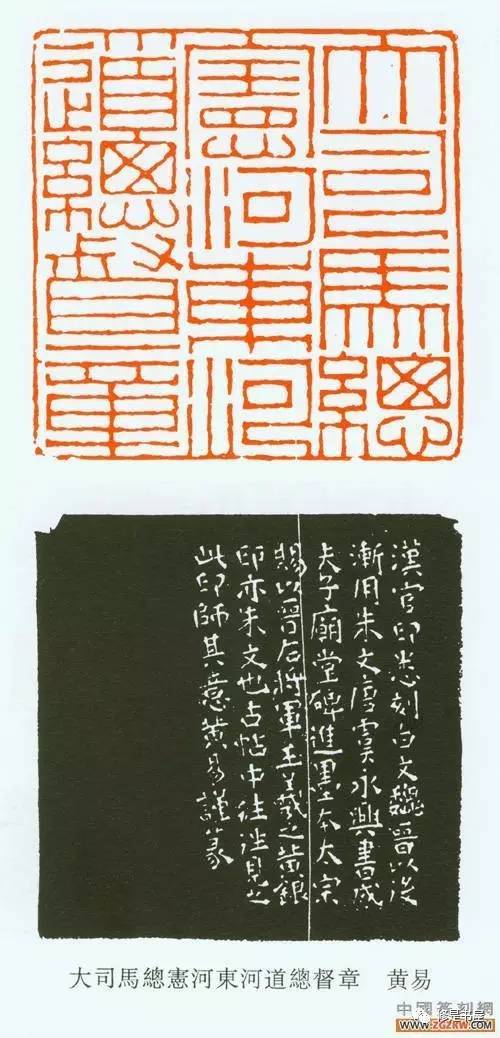 大司馬總
憲河東河
道總督章
漢官印悉刻白文魏晉以後
漸用朱文唐虞永興書成
夫子廟堂碑進墨本太宗
賜以晉右將軍王羲之黃銀
印亦朱文也古帖中往往見之
此印師其意黃易謹篆
大司馬總憲河東河道總督章 黄易
中國篆刻網
修是书屋
WWW.ZGZKW.COM